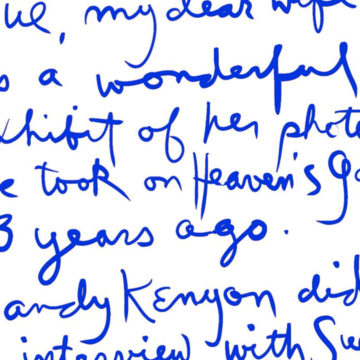 ue, my dear wife
s a wonderful
xhibit of her photo
e took on Heaven's Ga
3 years ago.
andy Kenyon did
interview with Su